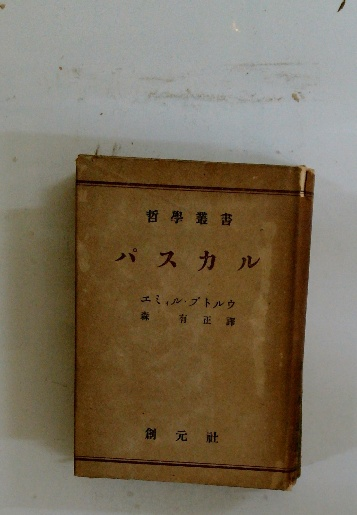 哲學叢書
パスカル
エミィル・ブトルウ
森 有正 譯
創元社